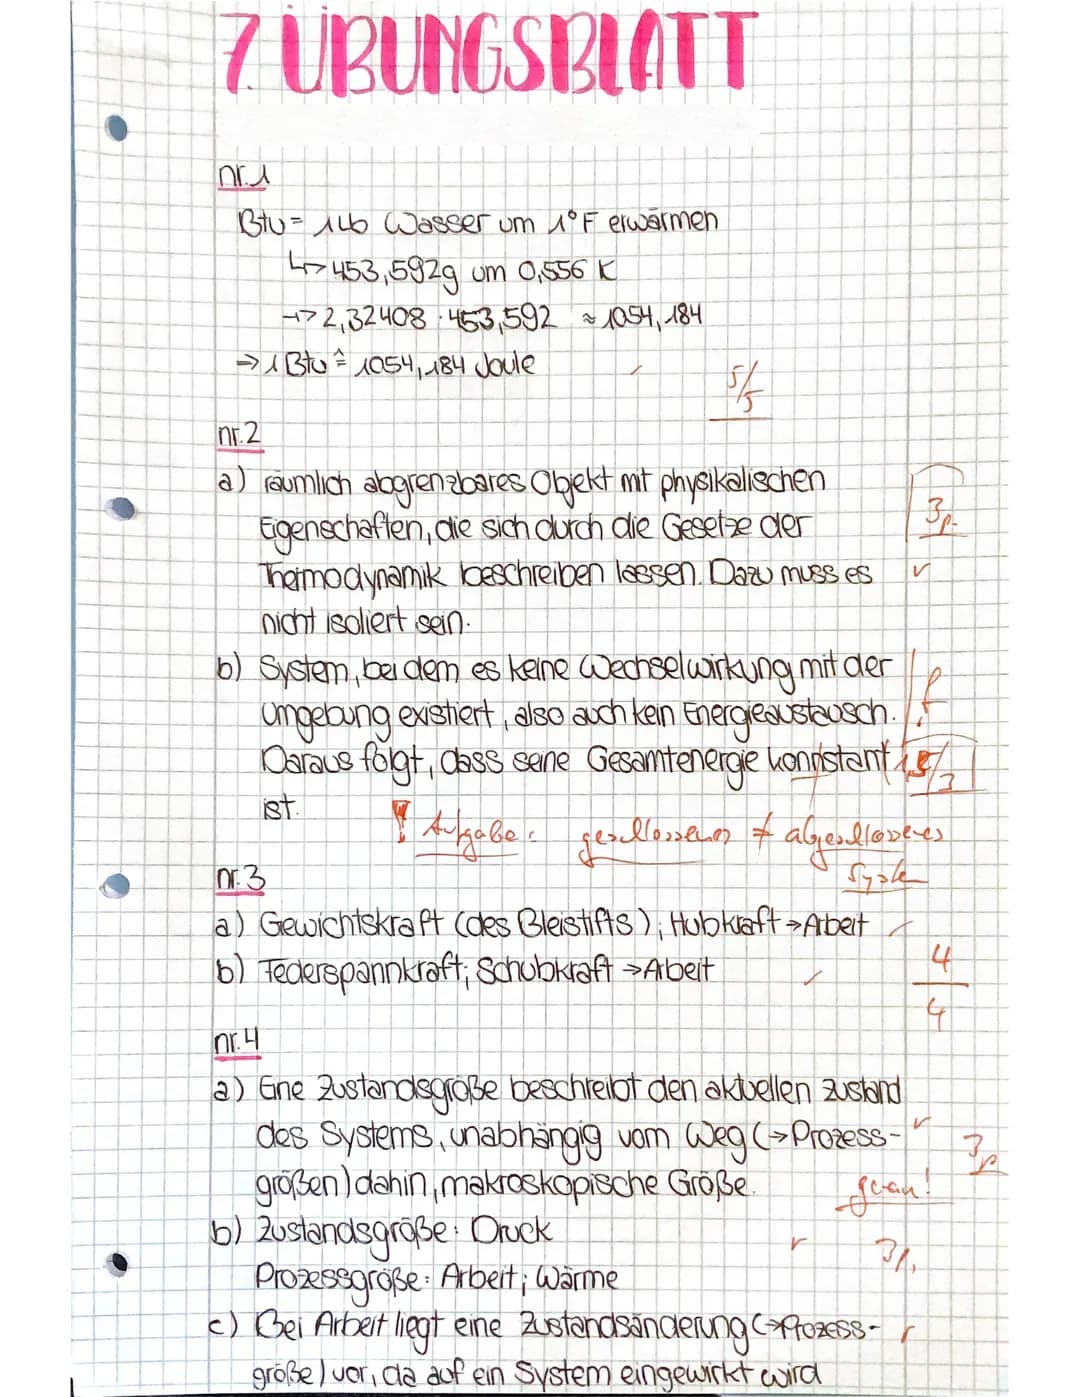 7. ÜBUNGSBLATT
nr.1
Btu = 1lb Wasser um 1°F erwärmen
↳ 453,592g um 0,556 K
→ 2,32408 · 453,592 ≈ 1054,184
⇒ 1 Btu ≙ 1054,184 Joule
5/5
nr.2
a) räumlich abgrenzbares Objekt mit physikalischen
Eigenschaften, die sich durch die Gesetze der
3p.
Thermodynamik beschreiben lassen. Dazu muss es
nicht isoliert sein.
b) System, bei dem es keine Wechselwirkung mit der
Umgebung existiert, also auch kein Energieaustausch. f
Daraus folgt, dass seine Gesamtenergie konnstant
ist.
! Aufgabe: geschlossenes ≠ abgeschlossenes
System
nr.3
a) Gewichtskraft (des Bleistifts); Hubkraft → Arbeit
b) Federspannkraft; Schubkraft → Arbeit
4/4
nr.4
a) Eine Zustandsgröße beschreibt den aktuellen Zustand
des Systems, unabhängig vom Weg (→ Prozess-
3p
größen) dahin, makroskopische Größe.
genau!
b) Zustandsgröße: Druck
3p.
Prozessgröße: Arbeit; Wärme
c) Bei Arbeit liegt eine Zustandsänderung (→ Prozess-
größe) vor, da auf ein System eingewirkt wird